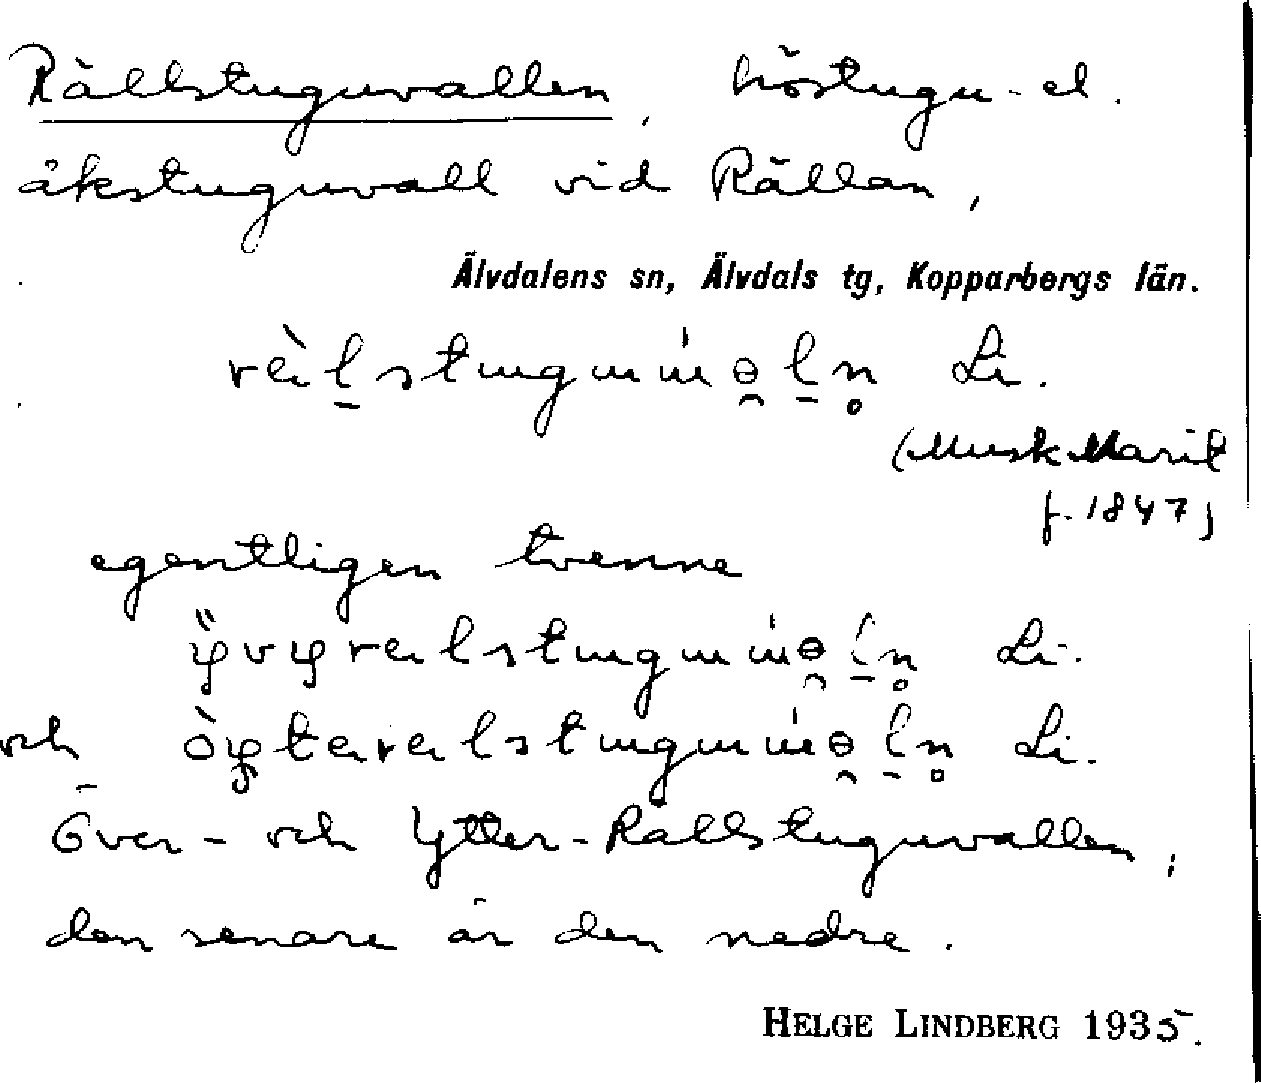 Rällstuguvallen, höstugu- el.
åkstuguvall vid Rällan,
Älvdalens sn, Älvdals tg, Kopparbergs län.
Li.
(Musk Marit
f. 1847)
egentligen tvenne
Li.
och Li.
Över- och Ytter-Rällstuguvallen,
den senare är den nedre.
HELGE LINDBERG 1935.